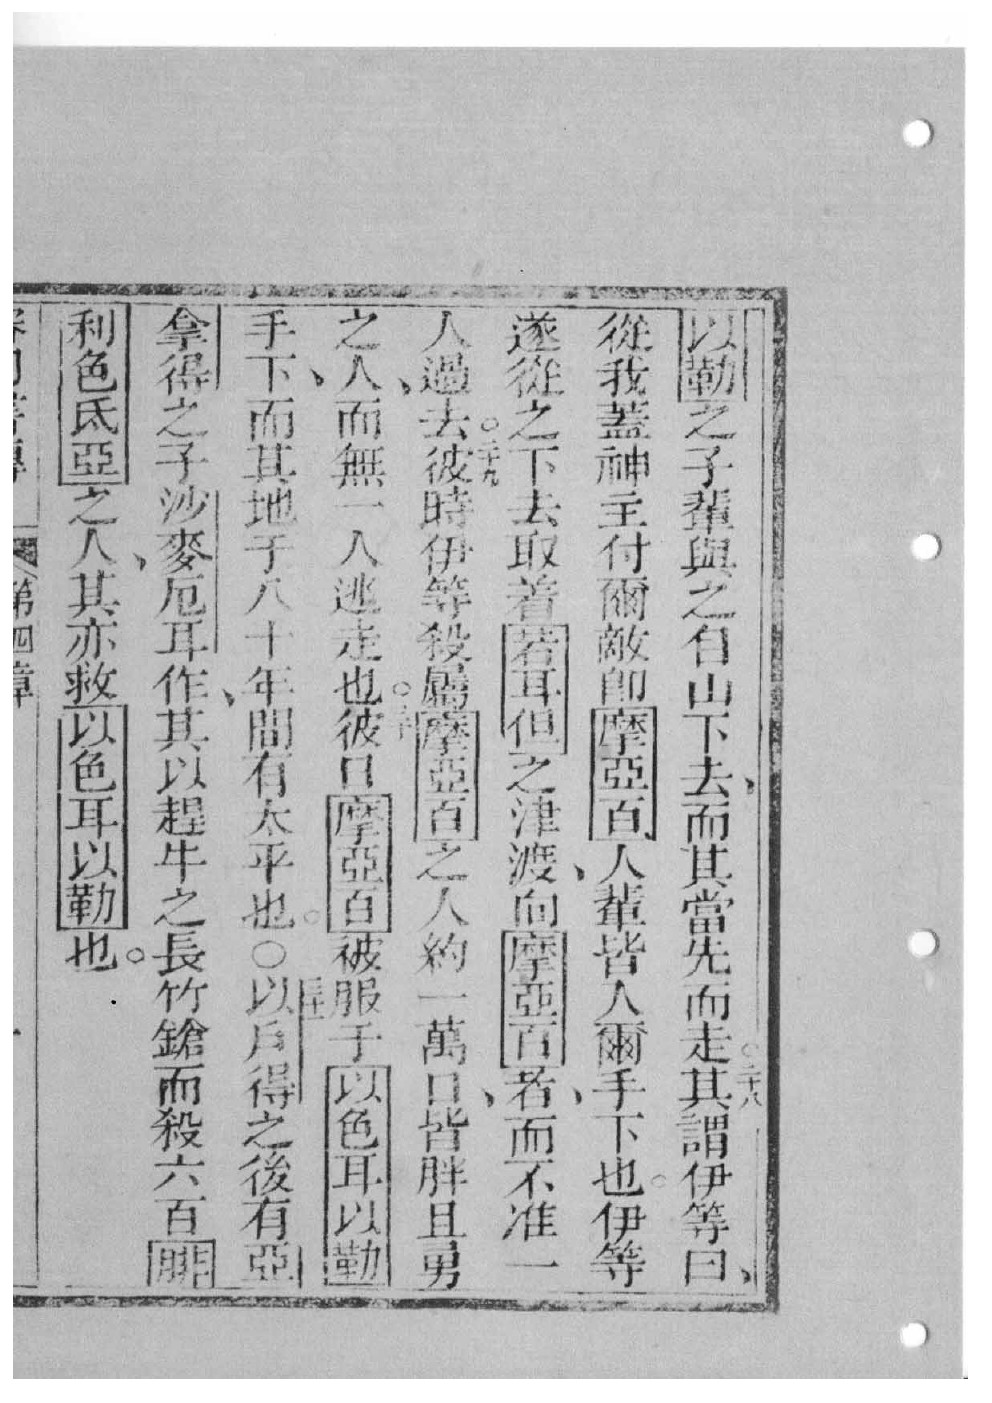 以勒之子輩與之自山下去、而其當先而走。二十八其謂伊等曰、
從我蓋神主付爾敵卽摩亞百人輩皆入爾手下也。伊等
遂從之下去取着若耳但之津渡、向摩亞百者、而不准一
人過去。二十九彼時伊等殺屬摩亞百之人約一萬口、皆胖且勇
之人、而無一人逃走也。三十彼日摩亞百被服于以色耳以勒
手下、而其地于八十年間有太平也。○三十一以戶得之後有亞
拿得之子沙麥厄耳作、其以趕牛之長竹鎗而殺六百腓
利色氐亞之人、其亦救以色耳以勒也。
第四章